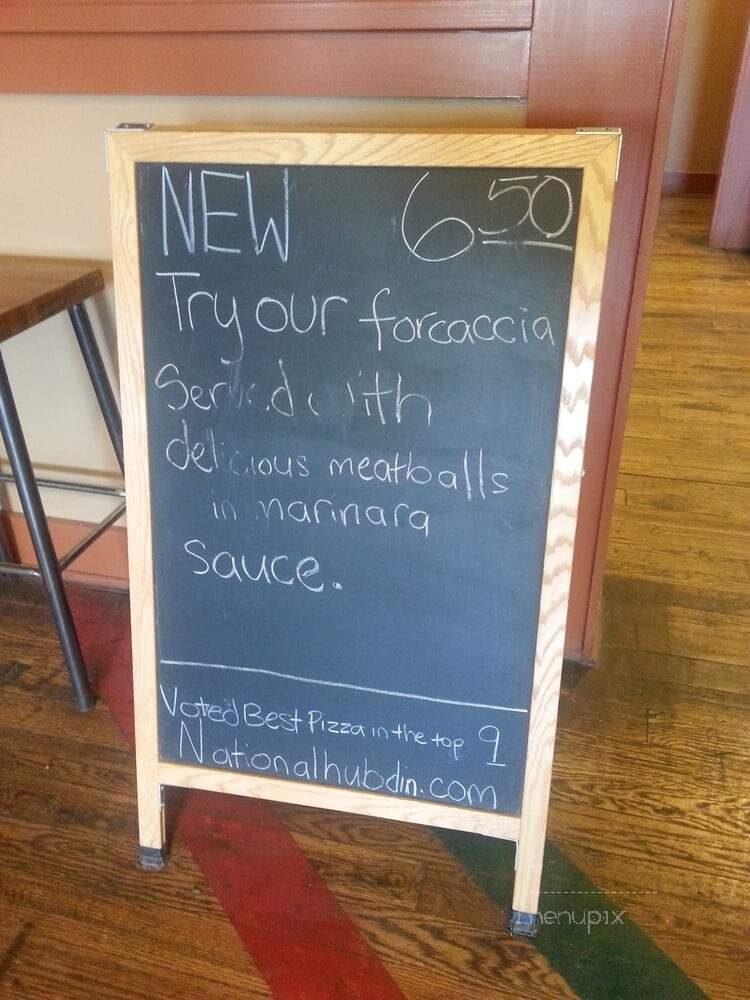 NEW 6 50
Try our forcaccia
Served with
delicious meatballs
in marinara
sauce.
Voted Best Pizza in the top 9
Nationalhubdin.com
menupix